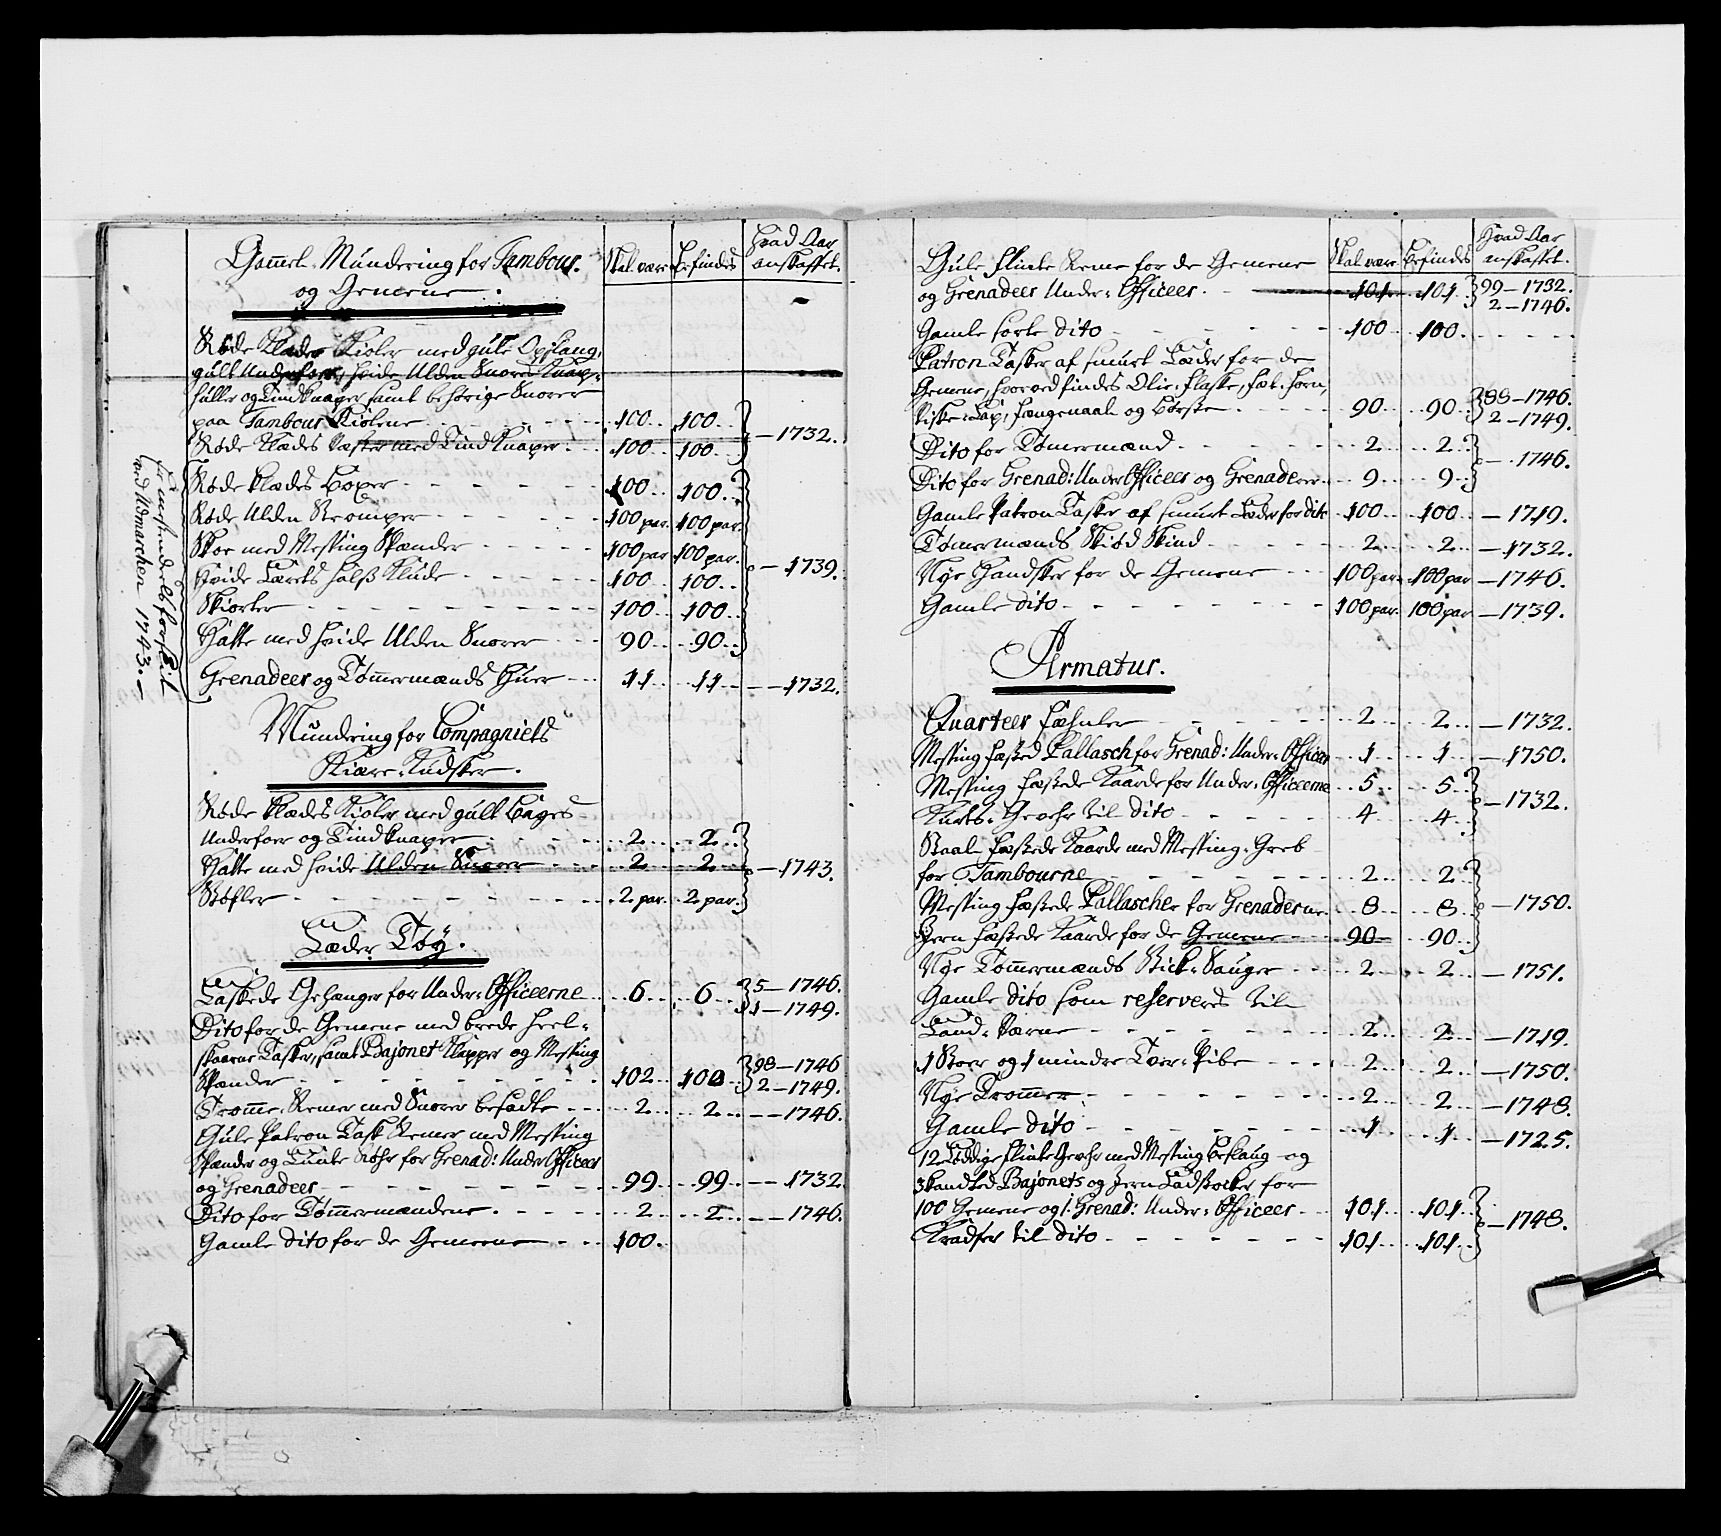 Gamel Mundering for Tambour. Skal være Befindes Hvad Aar anskaffet.
og Gemene.
Røde Klædes Kioler med gule Opslang,
gult Underfoer, hvide Ulden Snorer Knap-
huller og Tind Knaper samt behørige Snorer
paa Tambour Kiolene 100 100
Røde Klædes Vester med Tind Knaper 100 100 — 1732.
Røde Klædes Boxer 100 100
Røde Ulden Strømper 100 par 100 par
Skoe med Messing Spænder 100 par 100 par
Hvide Lærets Halß Klude 100 100 — 1739.
Skiorter 100 100
Hatte med hvide Ulden Snorer 90 90
Grenadeer og Tømmermænds Huer 11 11 — 1732.
ved Udmarchen 1743. —
Mundering for Compagniets
Kiære-Kudsker.
Røde Klædes Kioler med gult Boyes
Underfoer og Tind Knaper 2 2
Hatte med hvide Ulden Snorer 2 2 — 1743.
Støfler 2 par 2 par
Læder Tøy.
Laskede Gehænger for Under-Officeerne 6 6 5 — 1746.
1 — 1749.
Dito for de Gemene med brede
Tasker, samt Bajonet Klapper og Messing
Spænder 102 100 98 — 1746
2 — 1749.
Tromme-Remer med Snorer besadte 2 2 — 1746.
Gule Patron Task Remer med Messing
Spænder og Lunte Røhr for Grenad: Under Officeer
og Grenadeer 99 99 — 1732
Dito for Tømmermændene 2 2 — 1746.
Gamle dito for de Gemene 100
Gule Flinte Reme for de Gemene Skal være Befindes Hvad Aar anskaffet.
og Grenadeer Under-Officeer 101 101 99 — 1732.
2 — 1746.
Gamle sorte dito 100 100
Patron Tasker af smurt Læder for de
Gemene, hvorved findes Olie-Flaske, Fæt-Horn,
Viske-Lap, Fængenaal og Børste 90 90 88 — 1746.
2 — 1749.
Dito for Tømermænd 2 2
Dito for Grenad: Under Officeer og Grenaderer 9 9 — 1746.
Gamle Patron Tasker af smurt Læder for dito 100 100 — 1719.
Tømermænds Skiød Skind 2 2 — 1732.
Nye Handsker for de Gemene 100 par 100 par — 1746.
Gamle dito 100 par 100 par — 1739.
Armatur.
Quarteer Fæhnler 2 2 — 1732.
Messing Fæsted Pallasch for Grenad: Under-Officeer 1 1 — 1750.
Messing Fæstede Kaarde for Under-Officeerne 5 5
Kurts-Gevehr til dito 4 4 — 1732.
Staal Fæstede Kaarde med Messing-Greb
for Tambourne 2 2
Messing Fæstede Pallascher for Grenaderne 8 8 — 1750.
Jern Fæstede Kaarde for de Gemene 90 90
Nye Tømmermænds Bick-Sauger 2 2 — 1751.
Gamle dito som reserveres til
Land-Værne 2 2 — 1719.
1 Stoer og 1 mindre Tvær-Pibe 2 2 — 1750.
Nye Trommer 2 2 — 1748.
Gamle dito 1 1 — 1725.
12 Løddige Flinte Gevehr med Messing Beslaug og
3kandted Bajonets og Jern Ladstocker for
100 Gemene og 1 Grenad: Under-Officeer 101 101
Kradser til dito 101 101 — 1748.